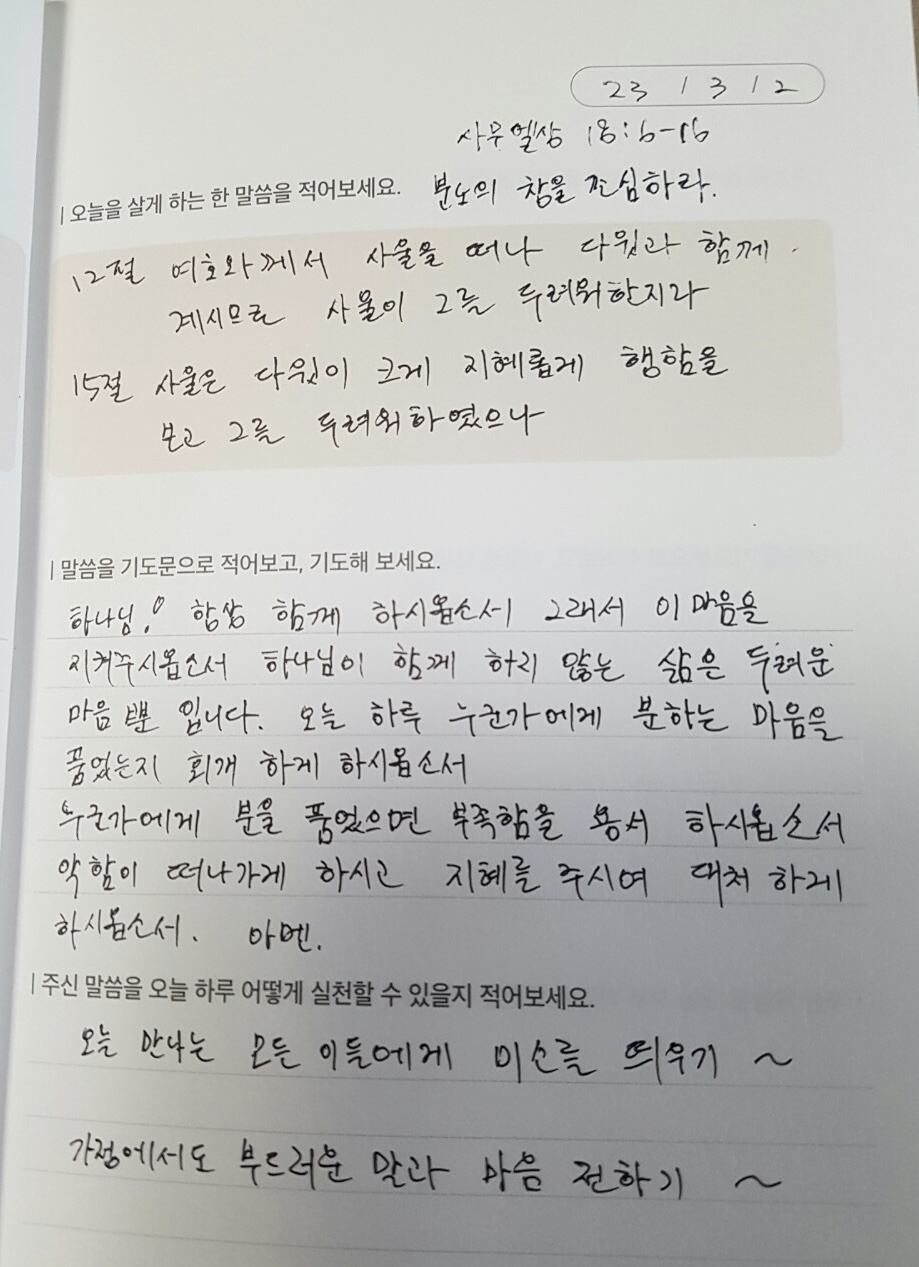 23 / 3 / 2
사무엘상 18:6-16
| 오늘을 살게 하는 한 말씀을 적어보세요. 분노의 창을 조심하라.
12절 여호와께서 사울을 떠나 다윗과 함께
계시므로 사울이 그를 두려워한지라
15절 사울은 다윗이 크게 지혜롭게 행함을
보고 그를 두려워하였으나
| 말씀을 기도문으로 적어보고, 기도해 보세요.
하나님! 항상 함께 하시옵소서 그래서 이 마음을
지켜주시옵소서 하나님이 함께 하지 않는 삶은 두려운
마음 뿐 입니다. 오늘 하루 누군가에게 분하는 마음을
품었는지 회개 하게 하시옵소서
누군가에게 분을 품었으면 부족함을 용서 하시옵소서
악함이 떠나가게 하시고 지혜를 주시여 대처 하게
하시옵소서. 아멘.
| 주신 말씀을 오늘 하루 어떻게 실천할 수 있을지 적어보세요.
오늘 만나는 모든 이들에게 미소를 띄우기 ~
가정에서도 부드러운 말과 마음 전하기 ~